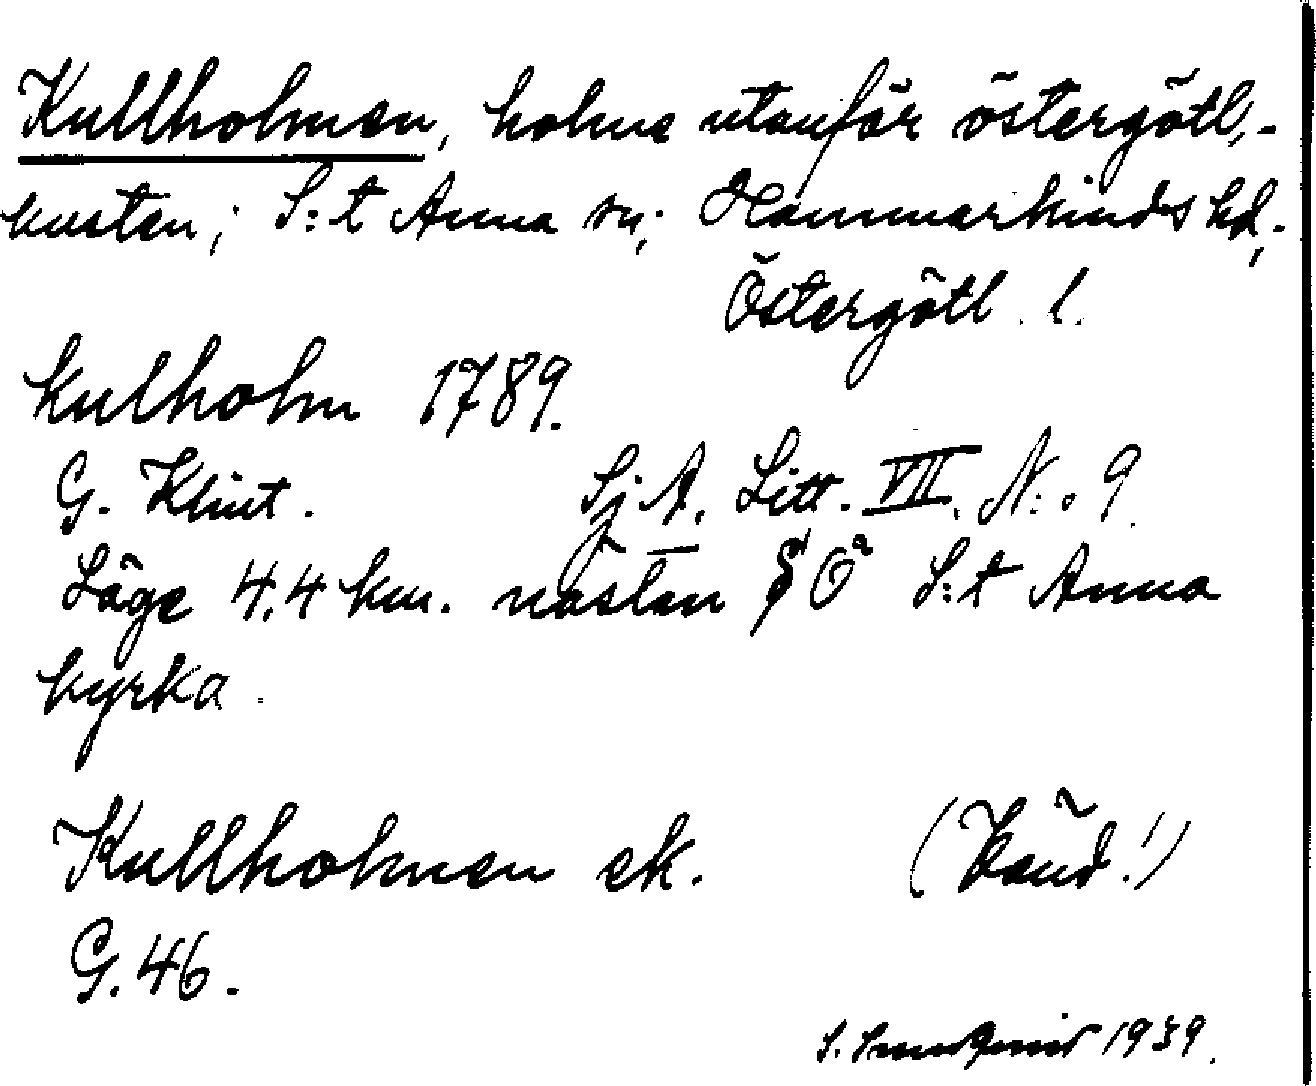 Kullholmen, holme utanför östergötl.-
kusten; S:t Anna sn; Hammarkinds hd,
Östergötl. l.
Kulholm 1789.
G. Klint. Sj A. Litt. VII. N:o 9.
Läge 4,4 km. nästan Ö S:t Anna
kyrka.
Kullholmen ek. (Känd!)
G. 46.
S. 1939.